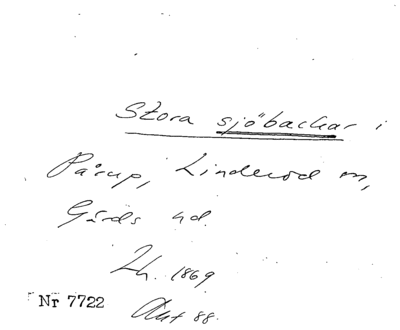 Stora sjöbackar i
Pårup, Linderöd sn,
Gärds hd.
Lh. 1869
Nr 7722
Akt 88.